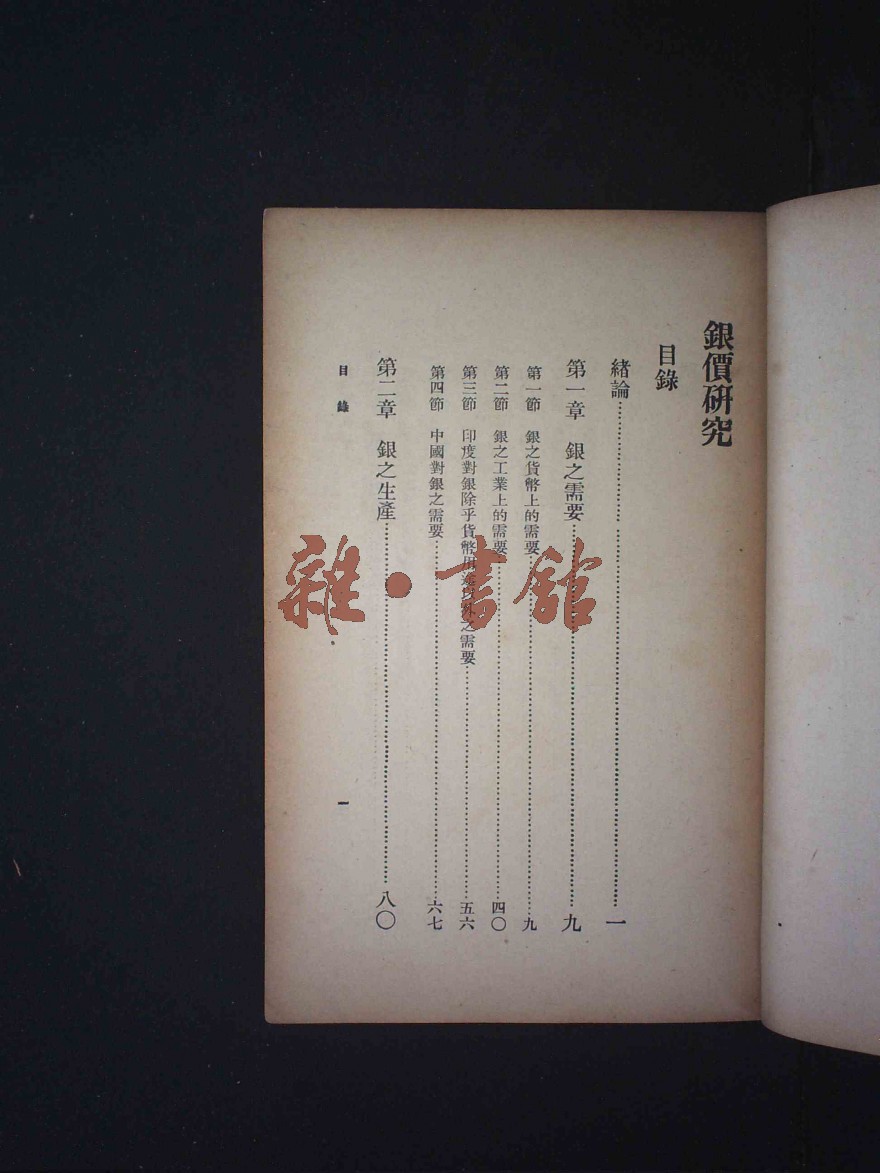 銀價研究
目錄
緒論……………………………………一
第一章　銀之需要……………………………………九
第一節　銀之貨幣上的需要……………………………………九
第二節　銀之工業上的需要……………………………………四〇
第三節　印度對銀除乎貨幣用途以外之需要……………………………………五六
第四節　中國對銀之需要……………………………………六七
第二章　銀之生產……………………………………八〇
目錄
一
雜·書館